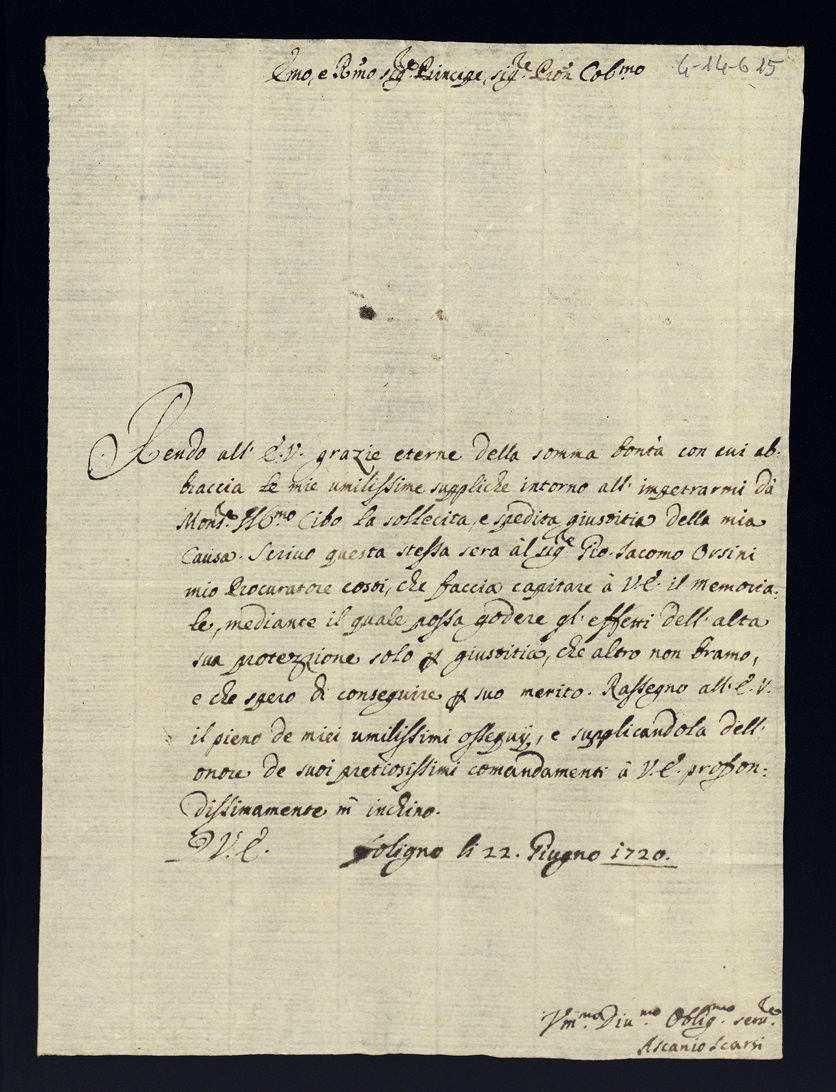 Emo, e Rmo sigre Principe, sigre Pron Colmo 4-14-6 15
Rendo all' E.V. grazie eterne della somma bontà con cui ab-
braccia le mie umilissime suppliche intorno all' impetrarmi dà
Monsre Illmo Cibo la sollecita, e spedita giustitia della mia
Causa. Scriuo questa stessa sera àl sigre Gio. Iacomo Orsini
mio Procuratore costì, che faccia capitare à V.E. il memoria-
le, mediante il quale possa godere gl' effetti dell' alta
sua protezzione solo p giustitia, che altro non bramo,
e che spero di conseguire p suo merito. Rassegno all' E.V.
il pieno de miei umilissimi ossequij, e supplicandola dell'
onore de suoi pretiosissimi comandamenti à V.E. profon-
dissimamente m' inchino.
D V.E. Foligno li 22. Giugno 1720.
Vmmo Diumo Obligmo serure
Ascanio Scarsi